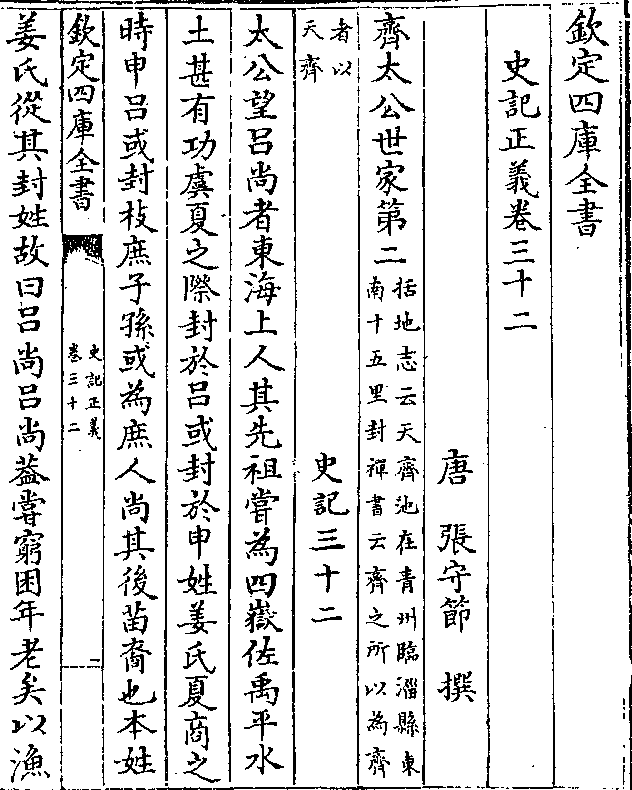 欽定四庫全書
史記正義卷三十二
唐 張守節 撰
齊太公世家第二
括地志云天齊池在青州臨淄縣東
南十五里封禪書云齊之所以為齊
者以
天齊
史記三十二
太公望呂尚者東海上人其先祖嘗為四嶽佐禹平水
土甚有功虞夏之際封於呂或封於申姓姜氏夏商之
時申呂或封枝庶子孫或為庶人尚其後苗裔也本姓
欽定四庫全書
史記正義
卷三十二
一
姜氏從其封姓故曰呂尚呂尚葢嘗窮困年老矣以漁